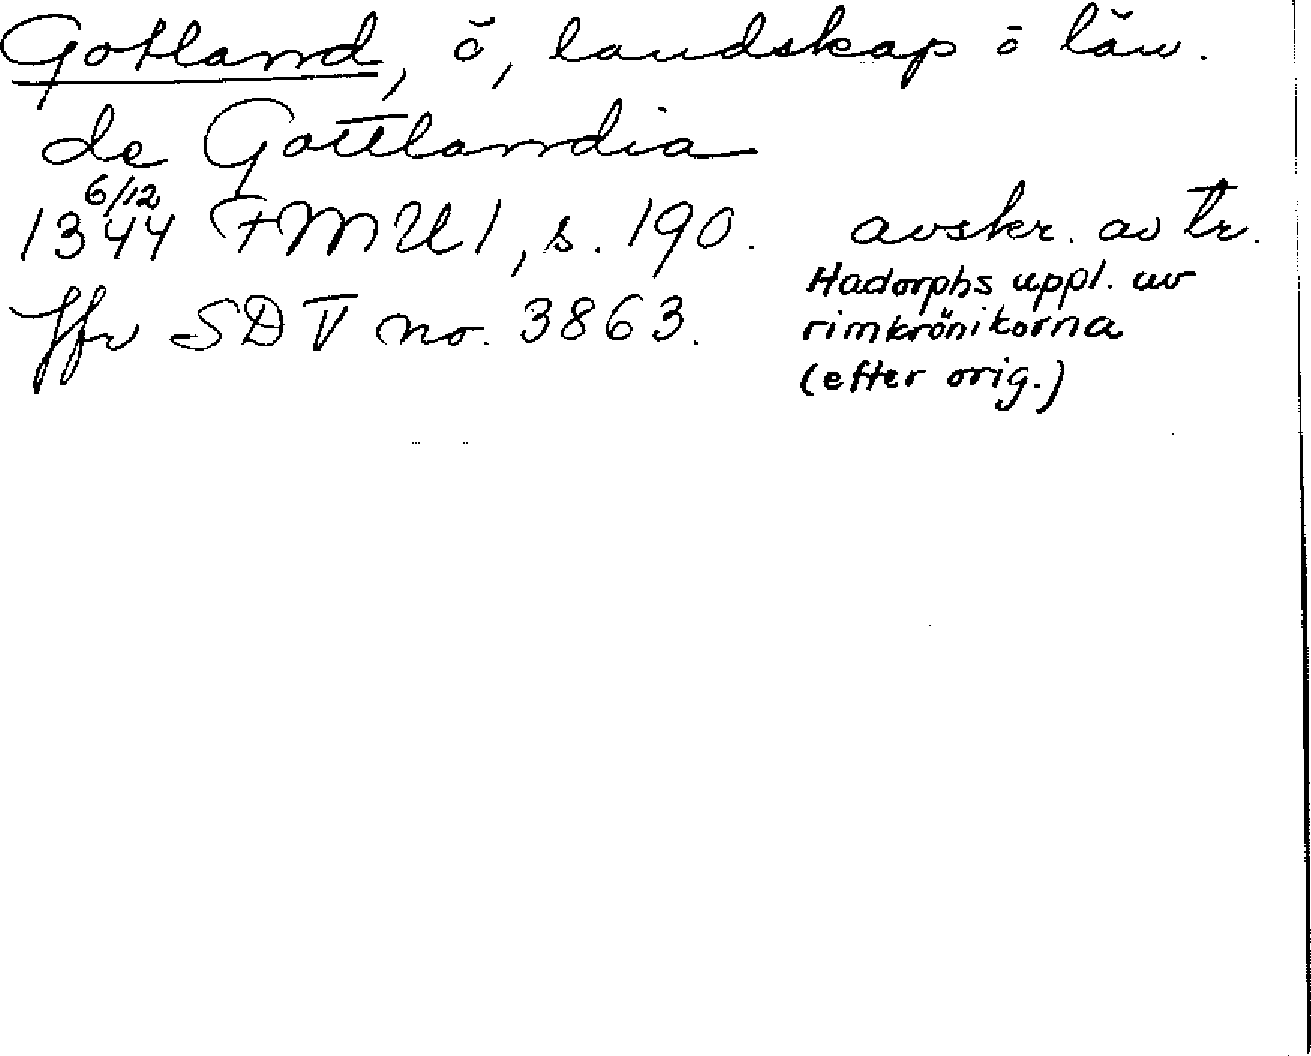 Gotland, ö, landskap o län.
de Gottlandia
6/12
1344 FMU 1, s. 190. avskr. av tr.
Hadorphs uppl. av
Jfr SD V no. 3863. rimkrönikorna
(efter orig.)